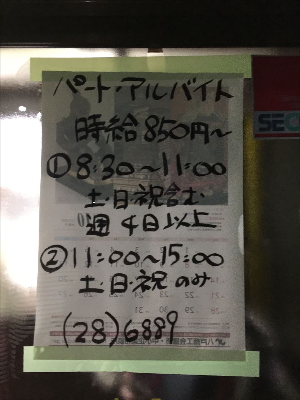 パート・アルバイト
時給850円～
①8:30～11:00
土・日・祝含む
週4日以上
②11:00～15:00
土・日・祝のみ
(28)6889
SEC